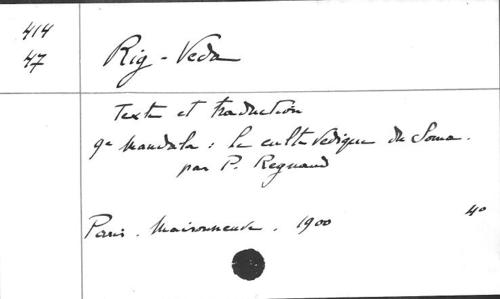 414
47
Rig-Veda
Texte et traduction
9e Mandala : le culte védique du Soma.
par P. Regnaud
Paris. Maisonneuve. 1900
4o